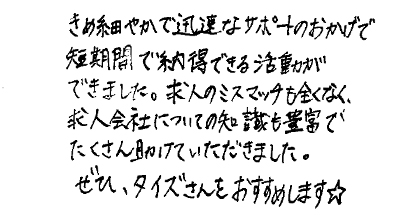 きめ細やかで迅速なサポートのおかげで
短期間で納得できる活動が
できました。求人のミスマッチも全くなく、
求人会社についての知識も豊富で
たくさん助けていただきました。
ぜひ、タイズさんをおすすめします☆